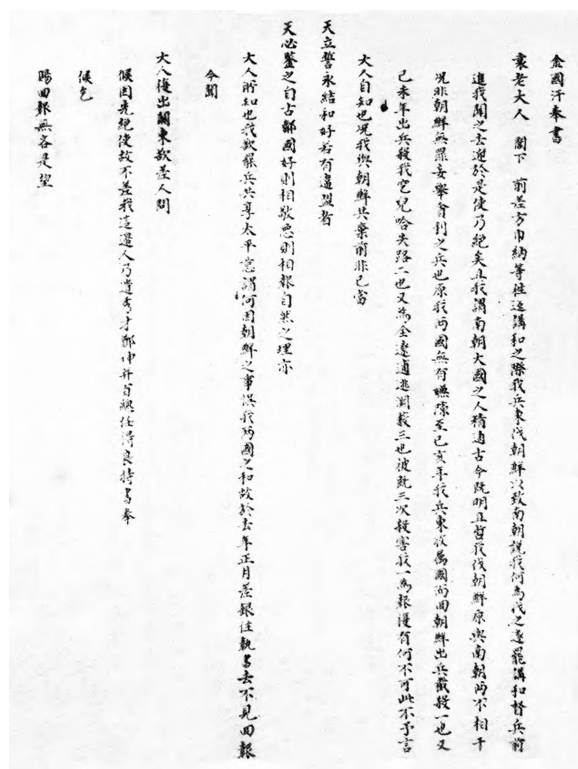 金國汗奉書
袁老大人 閣下 前差方巾納等徃返講和之際我兵東伐朝鮮以致南朝説我何爲伐之遂罷講和督兵前
進我聞之去迎於是使乃絶矣且我謂南朝大國之人精通古今既明且哲我伐朝鮮原與南朝兩不相干
况非朝鮮無罪妄舉貪利之兵也原我兩國無有嫌隙至己亥年我兵東收屬國而回朝鮮出兵截殺一也又
己未年出兵殺我 二也又爲全遼逋逃淵藪三也彼既三次殺害我一爲報復有何不可此不予言
大人自知也况我與朝鮮共棄前非已當
天立誓永結和好若有違盟者
天必鑒之自古鄰國好則相敬惡則相報自然之理亦
大人所知也我欲罷兵共享太平豈謂何因朝鮮之事悞我兩國之和故於去年正月差銀住執書去不見回報
今聞
大人復出關東欲差人問
候因先絶使故不差我這邊人乃遣秀才鄭坤并百總任得良持書奉
候乞
賜回報無吝是望